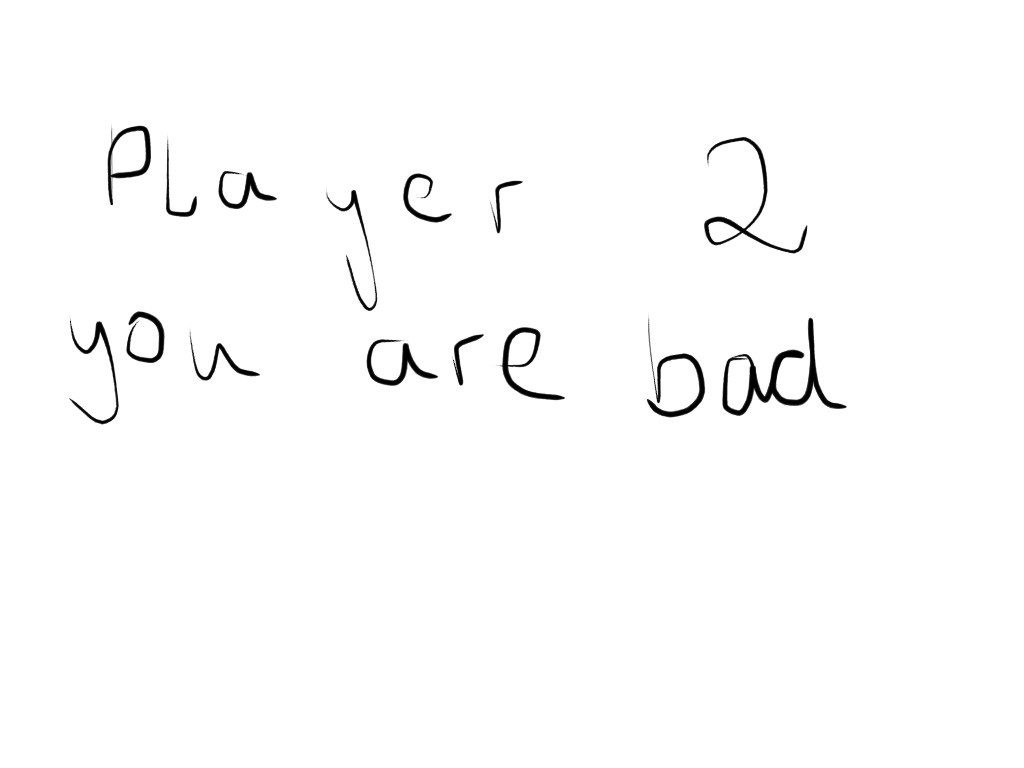 Player 2
you are bad